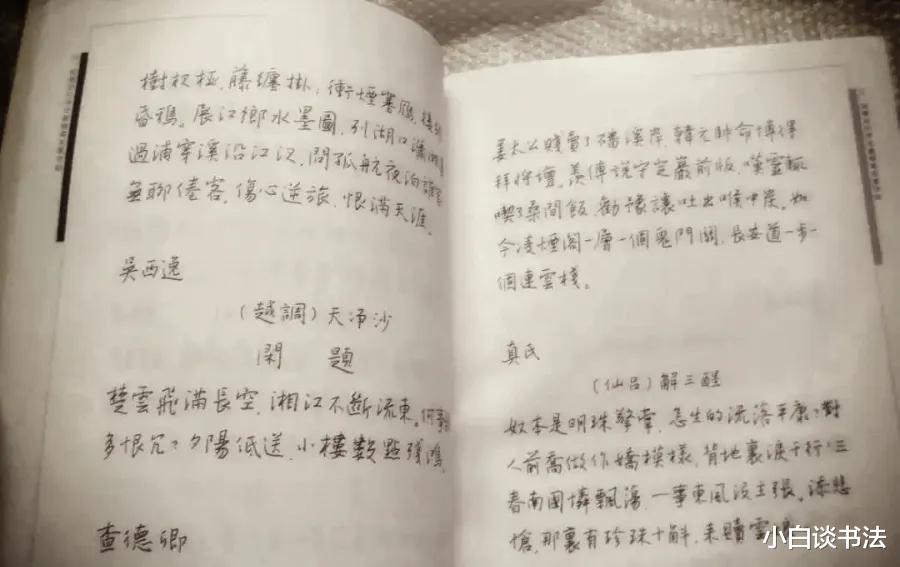 樹杈枒,藤纏掛,衝煙塞鴈,接翅
昏鴉。展江鄉水墨圖,列湖口瀟湘
過浦穿溪沿江汊,問孤航夜泊誰家
無聊倦客,傷心逆旅,恨滿天涯。
吳西逸
(越調)天淨沙
閑 題
楚雲飛滿長空,湘江不斷流東。何事
多恨冗?夕陽低送,小樓數點殘鴻。
查德卿
姜太公賤賣了磻溪岸,韓元帥命博得
拜將壇。羨傅說守定巖前版,嘆靈輒
喫了桑間飯,勸豫讓吐出喉中炭。如
今凌煙閣一層一個鬼門關,長安道一步一
個連雲棧。
真氏
(仙呂)解三酲
奴本是明珠擎掌,怎生的流落平康?對
人前喬做作嬌模樣,背地裏淚千行。三
春南國憐飄蕩,一事東風沒主張。添悲
愴,那裏有珍珠十斛,來贖雲
小白谈书法